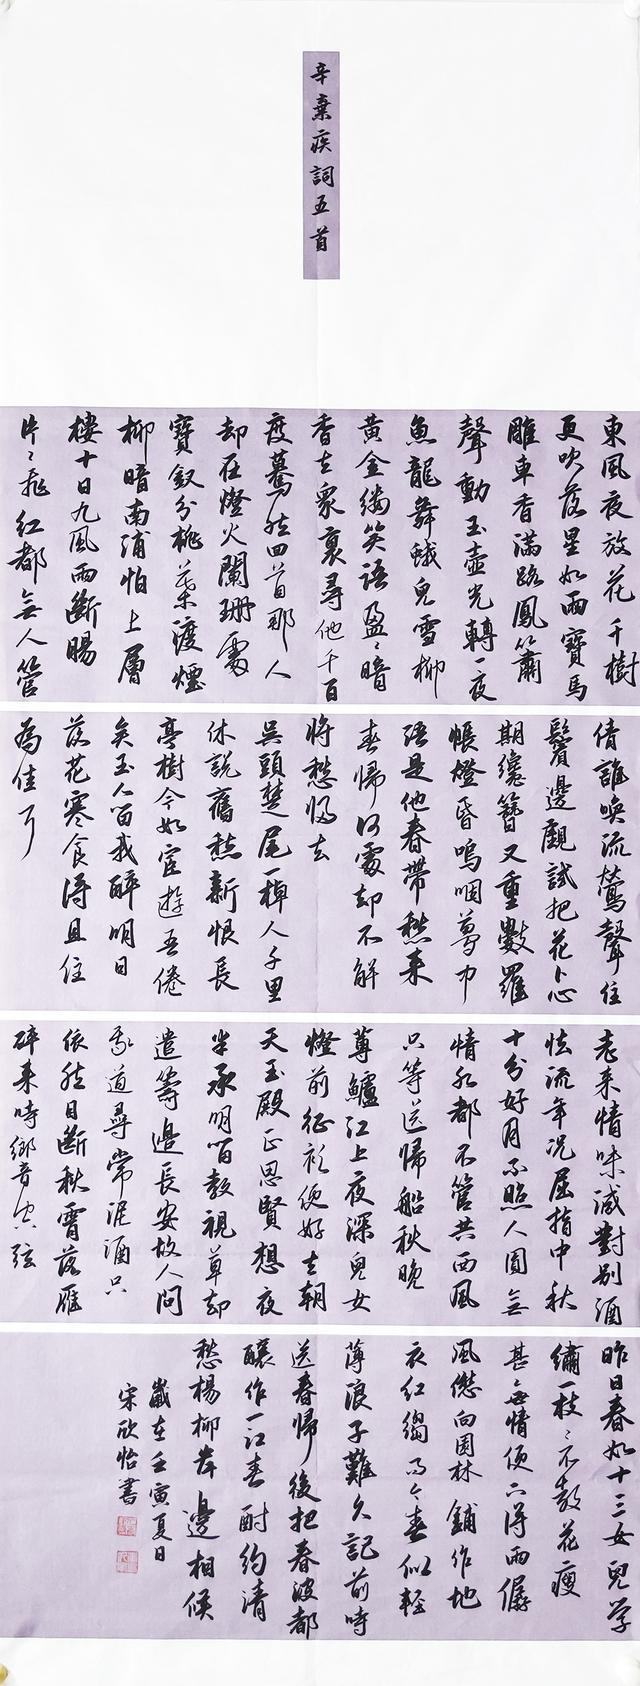 辛棄疾詞五首
東風夜放花千樹
更吹落星如雨寶馬
雕車香滿路鳳簫
聲動玉壺光轉一夜
魚龍舞蛾兒雪柳
黃金縷笑語盈〻暗
香去眾裏尋他千百
度驀然回首那人
却在燈火闌珊處
寶釵分桃葉渡煙
柳暗南浦怕上層
樓十日九風雨斷腸
片〻飛紅都無人管
倩誰喚流鶯聲住
鬢邊覷試把花卜心
期纔簪又重數羅
帳燈昏嗚咽夢中
語是他春帶愁來
春歸何處却不解
將愁歸去
吳頭楚尾一棹人千里
休說舊愁新恨長
亭樹今如宦遊吾倦
矣玉人留我醉明日
落花寒食得且住
為佳耳
老來情味減對別酒
怯流年況屈指中秋
十分好月不照人圓無
情水都不管共西風
只等送歸船秋晚
蓴鱸江上夜深兒女
燈前征衫便好去朝
天玉殿正思賢想夜
半承明留教視草却
遣籌邊長安故人問
我道尋常泥酒只
依然目斷秋霄落雁
醉來時響空弦
昨日春如十三女兒學
繡一枝〻不教花瘦
甚無情便下得雨僝
風僽向園林鋪作地
衣紅縐而今春似輕
薄浪子難久記前時
送春歸後把春波都
釀作一江春酎約清
愁楊柳岸邊相候
歲在壬寅夏日
宋欣怡書